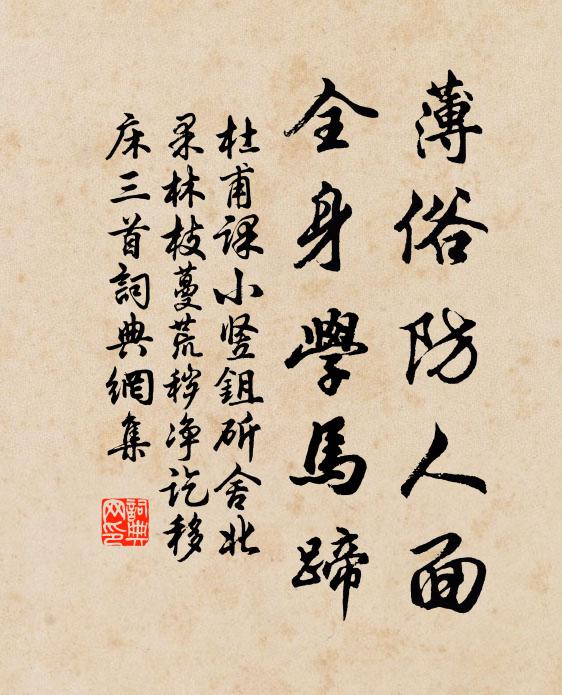 薄俗防人面
全身學馬蹄
杜甫課小豎鉏斫舍北
果林枝蔓荒穢净訖移
床三首詞典網集
詞典
网印